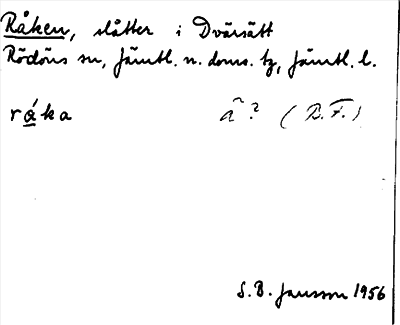 Råken, slåtter i Dvärsätt
Rödöns sn, Jämtl. n. doms. tg, Jämtl. l.
rá̲ka ã? (B.F.)
S.B. Jansson 1956